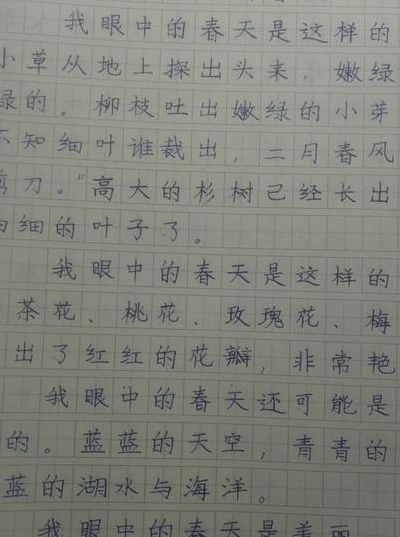 我眼中的春天是这样的
小草从地上探出头来，嫩绿
绿的。柳枝吐出嫩绿的小芽
不知细叶谁裁出，二月春风
剪刀。"高大的杉树已经长出
细细的叶子了。
我眼中的春天是这样的
茶花、桃花、玫瑰花、梅
出了红红的花瓣，非常艳
我眼中的春天还可能是
的。蓝蓝的天空，青青的
蓝的湖水与海洋。
我眼中的春天是美丽